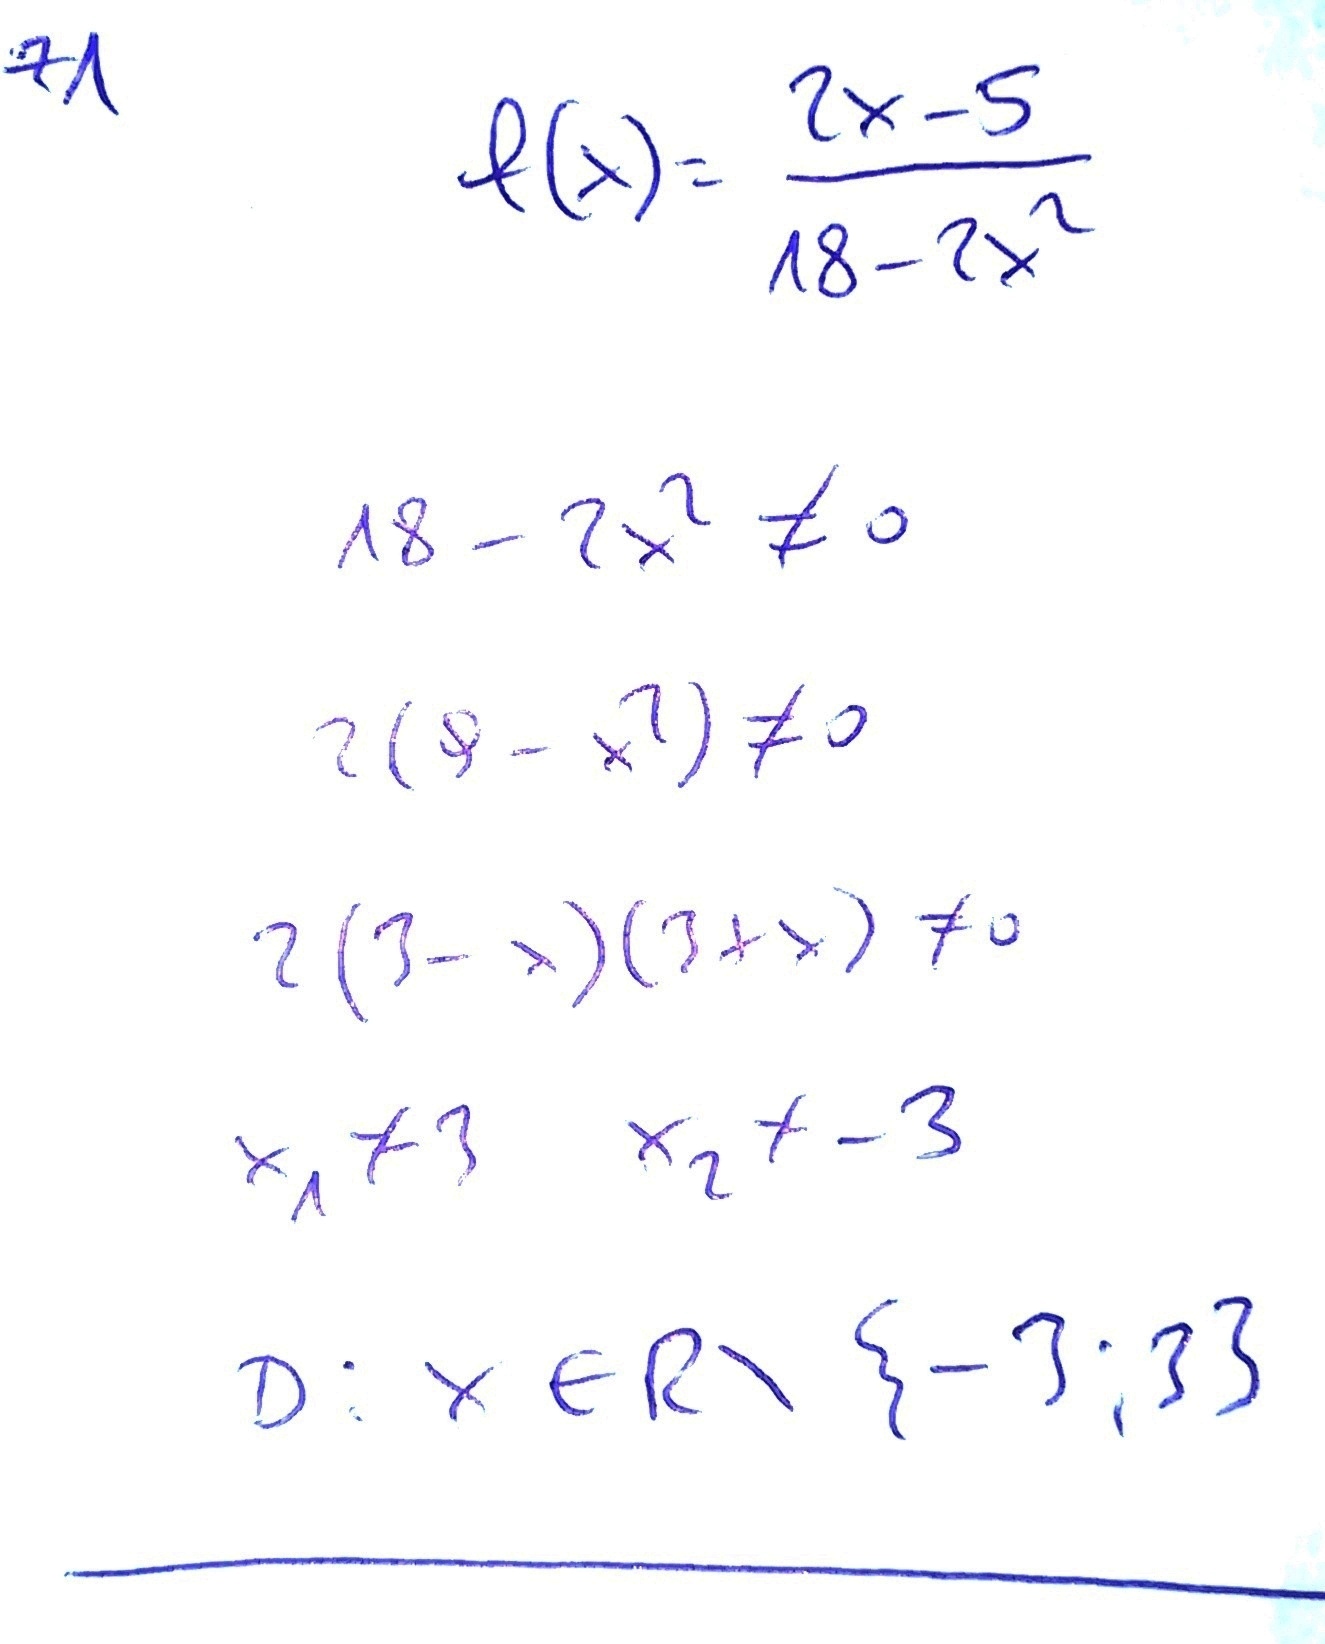 71
f(x)= \frac{2x-5}{18-2x²}
18 - 2x² ≠ 0
2(9 - x²) ≠ 0
2(3 - x)(3+x) ≠ 0
x₁ ≠ 3 x₂ ≠ -3
D: x ∈ R \ {-3; 3}